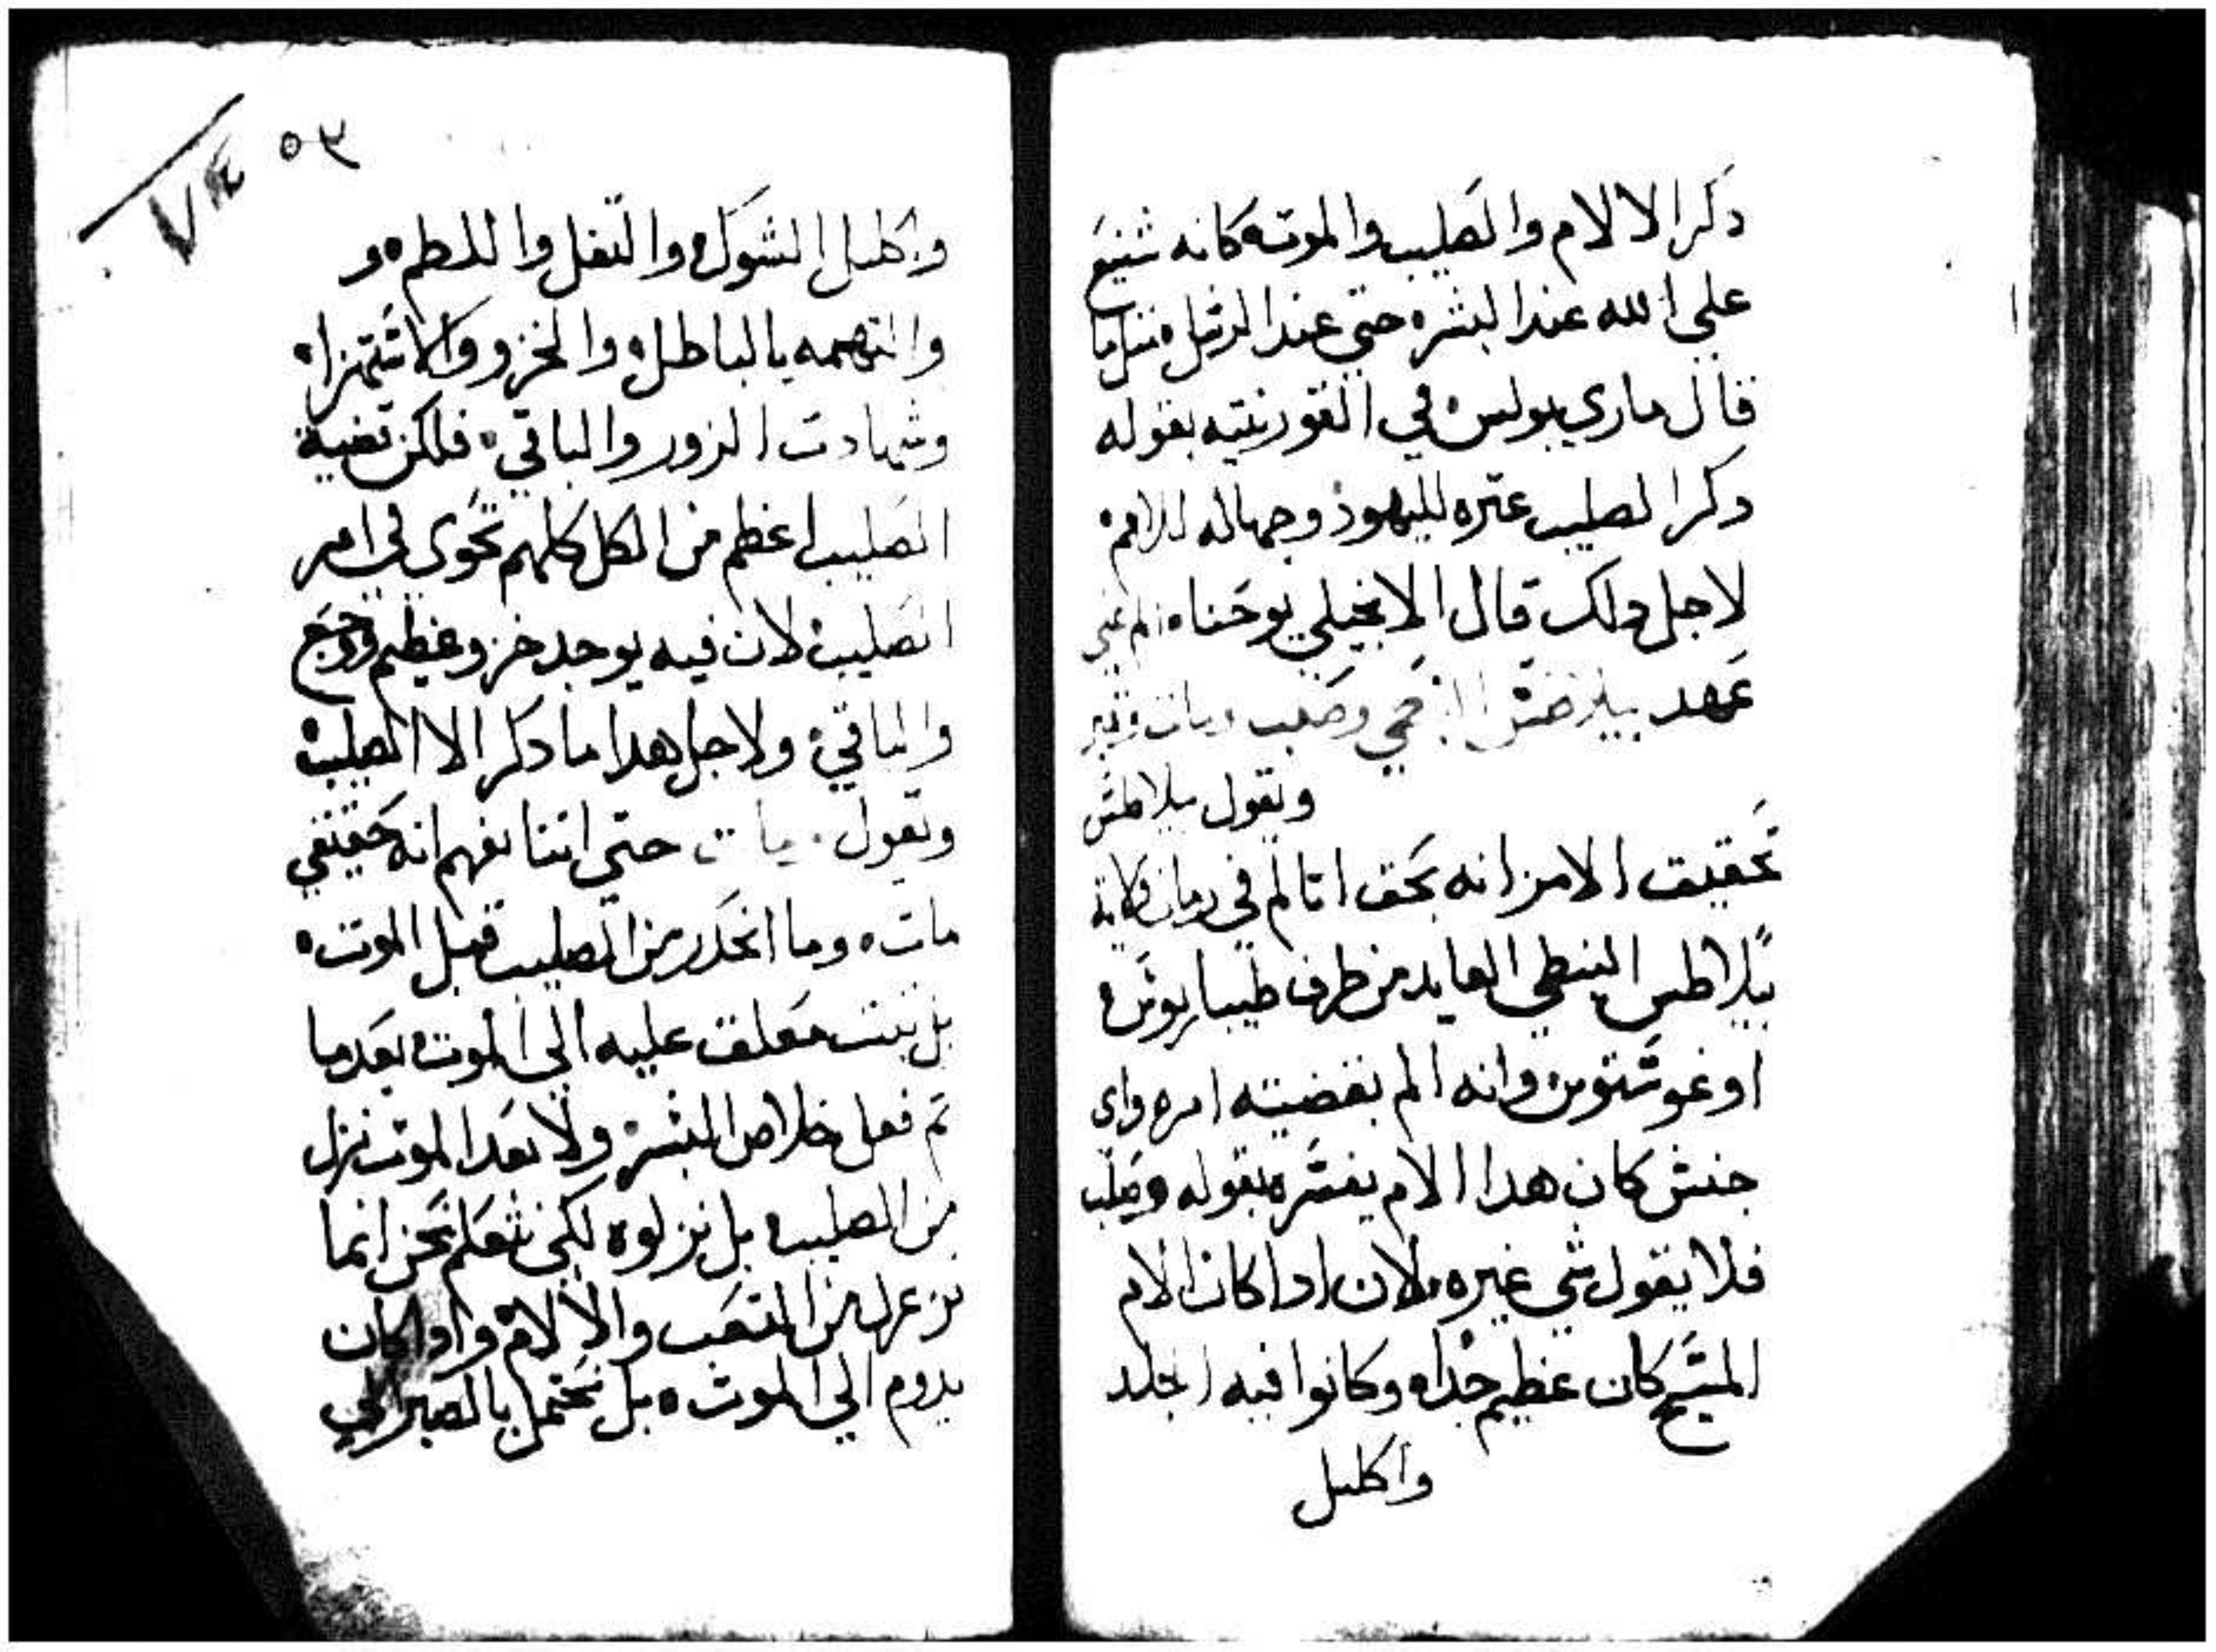 دكر الالام والصليب والموت كانه شنيع
علي الله عند البشر حتي عند الرسل مثل ما
قال ماري بولس في القورنتيه بقوله
دكر الصليب عتره لليهود وجهاله للامم
لاجل دلك قال الانجيلي يوحنا الم في
عهد وصلب ومات وقبر
ويقول بيلاطس
تحقيق الامر انه بحق اتالم في زمان ولاية
بيلاطس البنطي القايد من طرف طيباريوس
اوغوسطوس وانه الم بقضيته امره واي
جنس كان هدا الالام يفسره بقوله وصلب
فلا يقول شي غيره لان ادا كان الالام
المسيح كان عظيم جدا وكانوا فيه الجلد
واكليل
٥٣
٧٤
واكليل الشوك والتفل واللطم و
والتهمه بالباطل والخزو والاستهزا
وشهادت الزور والباقي فلكن قضية
الصليب اعظم من الكل كلهم تحوي في امر
الصليب لان فيه يوجد خزو عظيم ووجع
والباقي ولاجل هدا ما دكر الا الصليب
وتقول مات حتي اننا نفهم انه حقيقي
مات وما انحدر من الصليب قبل الموت
بل تبت معلق عليه الي الموت بعدما
تم فعل خلاص البشر ولا بعد الموت نزل
من الصليب بل نزلوه لكي نتعلم نحن انما
نزعل من التعب والالام وادا كان
يدوم الي الموت بل نحتمل بالصبر الي